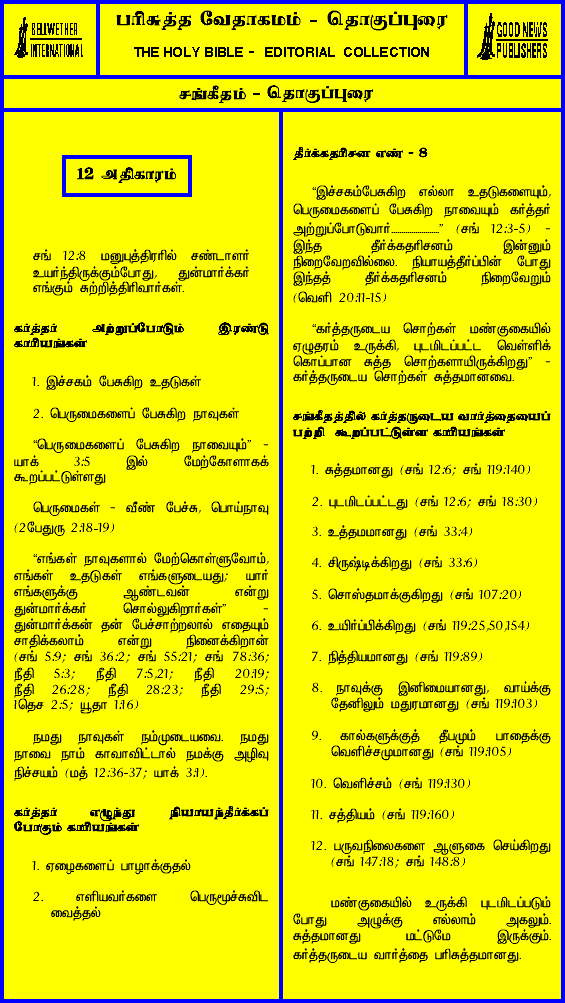 BELLWETHER
INTERNATIONAL
பரிசுத்த வேதாகமம் - தொகுப்புரை
THE HOLY BIBLE - EDITORIAL COLLECTION
GOOD NEWS
PUBLISHERS
சங்கீதம் - தொகுப்புரை
12 அதிகாரம்
சங் 12:8 மனுபுத்திரரில் சண்டாளர்
உயர்ந்திருக்கும்போது, துன்மார்க்கர்
எங்கும் சுற்றித்திரிவார்கள்.
கர்த்தர் அற்றுப்போடும் இரண்டு
காரியங்கள்
1. இச்சகம் பேசுகிற உதடுகள்
2. பெருமைகளைப் பேசுகிற நாவுகள்
“பெருமைகளைப் பேசுகிற நாவையும்” -
யாக் 3:5 இல் மேற்கோளாகக்
கூறப்பட்டுள்ளது
பெருமைகள் - வீண் பேச்சு, பொய்நாவு
(2பேதுரு 2:18-19)
“எங்கள் நாவுகளால் மேற்கொள்ளுவோம்,
எங்கள் உதடுகள் எங்களுடையது; யார்
எங்களுக்கு ஆண்டவன் என்று
துன்மார்க்கர் சொல்லுகிறார்கள்” -
துன்மார்க்கன் தன் பேச்சாற்றலால் எதையும்
சாதிக்கலாம் என்று நினைக்கிறான்
(சங் 5:9; சங் 36:2; சங் 55:21; சங் 78:36;
நீதி 5:3; நீதி 7:5,21; நீதி 20:19;
நீதி 26:28; நீதி 28:23; நீதி 29:5;
1தெச 2:5; யூதா 1:16)
நமது நாவுகள் நம்முடையவை. நமது
நாவை நாம் காவாவிட்டால் நமக்கு அழிவு
நிச்சயம் (மத் 12:36-37; யாக் 3:1).
கர்த்தர் எழுந்து நியாயந்தீர்க்கப்
போகும் காரியங்கள்
1. ஏழைகளைப் பாழாக்குதல்
2. எளியவர்களை பெருமூச்சுவிட
வைத்தல்
தீர்க்கதரிசன எண் - 8
“இச்சகம்பேசுகிற எல்லா உதடுகளையும்,
பெருமைகளைப் பேசுகிற நாவையும் கர்த்தர்
அற்றுப்போடுவார்......................” (சங் 12:3-5) -
இந்த தீர்க்கதரிசனம் இன்னும்
நிறைவேறவில்லை. நியாயத்தீர்ப்பின் போது
இந்தத் தீர்க்கதரிசனம் நிறைவேறும்
(வெளி 20:11-15)
“கர்த்தருடைய சொற்கள் மண்குகையில்
ஏழுதரம் உருக்கி, புடமிடப்பட்ட வெள்ளிக்
கொப்பான சுத்த சொற்களாயிருக்கிறது” -
கர்த்தருடைய சொற்கள் சுத்தமானவை.
சங்கீதத்தில் கர்த்தருடைய வார்த்தையைப்
பற்றி கூறப்பட்டுள்ள காரியங்கள்
1. சுத்தமானது (சங் 12:6; சங் 119:140)
2. புடமிடப்பட்டது (சங் 12:6; சங் 18:30)
3. உத்தமமானது (சங் 33:4)
4. சிருஷ்டிக்கிறது (சங் 33:6)
5. சொஸ்தமாக்குகிறது (சங் 107:20)
6. உயிர்ப்பிக்கிறது (சங் 119:25,50,154)
7. நித்தியமானது (சங் 119:89)
8. நாவுக்கு இனிமையானது, வாய்க்கு
தேனிலும் மதுரமானது (சங் 119:103)
9. கால்களுக்குத் தீபமும் பாதைக்கு
வெளிச்சமுமானது (சங் 119:105)
10. வெளிச்சம் (சங் 119:130)
11. சத்தியம் (சங் 119:160)
12. பருவநிலைகளை ஆளுகை செய்கிறது
(சங் 147:18; சங் 148:8)
மண்குகையில் உருக்கி புடமிடப்படும்
போது அழுக்கு எல்லாம் அகலும்.
சுத்தமானது மட்டுமே இருக்கும்.
கர்த்தருடைய வார்த்தை பரிசுத்தமானது.